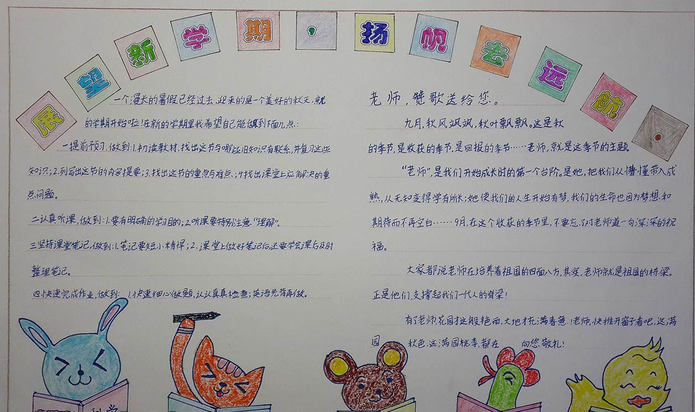 展望新学期，扬帆去远航.
一个漫长的暑假已经过去，迎来的是一个美好的秋天，新
的学期开始啦！在新的学期里我希望自己能做到下面几点：
一提前预习，做到：1.初读教材，找出这节与哪些旧知识有联系，并复习这些
知识；2.列写出这节的内容提要；3.找出这节的重点与难点；4.找出课堂上应解决的重
点问题。
二认真听课，做到：1.要有明确的学习目的；2.听课要特别注意"理解"。
三坚持课堂笔记，做到：1.笔记要短小精悍；2.课堂上做好笔记后还要学会课后及时
整理笔记。
四快速完成作业，做到：1.快速细心做题，认认真真检查；英语先背再做。
老师，赞歌送给您。
九月，秋风飒飒，秋叶飘飘。这是秋
的季节，是收获的季节，是回报的季节……老师，就是这季节的主题
"老师"，是我们开始成长时的第一个台阶。是她，把我们从懵懂带入成
熟，从无知变得学有所长；她使我们的人生开始有梦，我们的生命也因为梦想和
期待而不再空白……9月，在这个收获的季节里，不要忘了对老师道一句深深的祝
福。
大家都说老师在培养着祖国的四面八方，其实，老师就是祖国的桥梁。
正是他们，支撑起我们一代人的脊梁！
有了老师，花园才这般艳丽，大地才充满春意！老师，快推开窗子看吧，这满
园 秋色，这满园桃李，都在 向您敬礼！